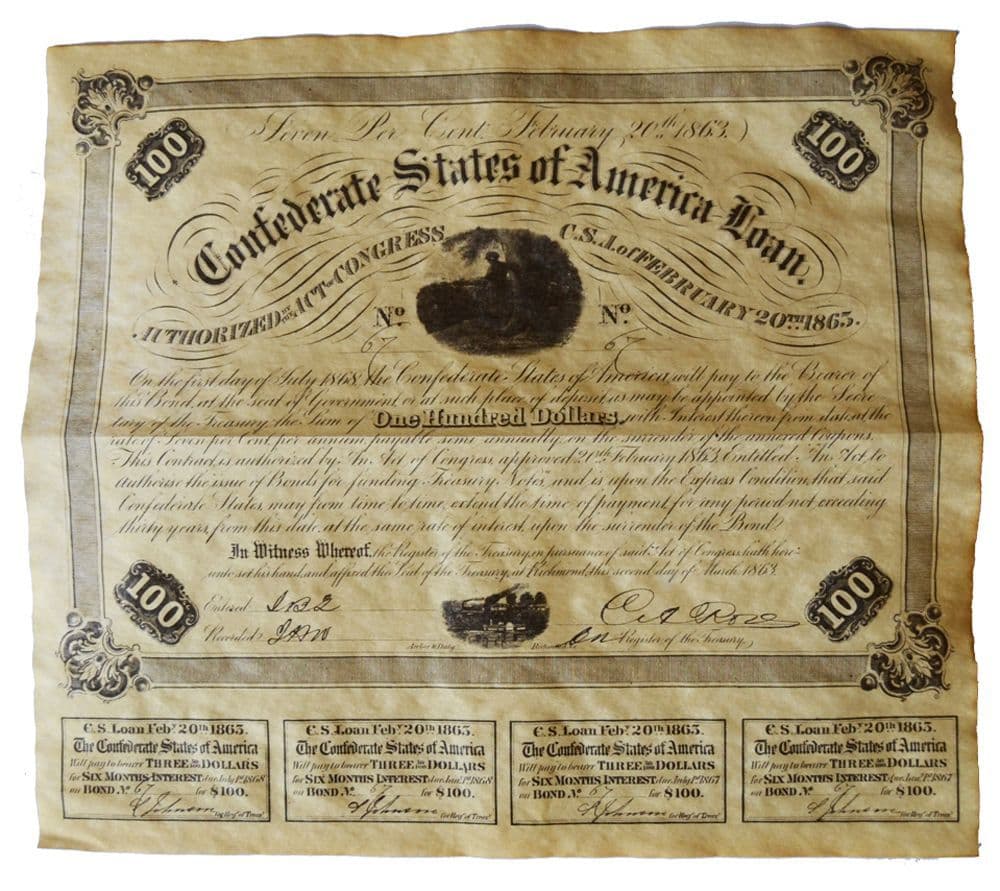 Seven Per Cent. February 20th 1863.)
100
100
Confederate States of America Loan.
AUTHORIZED BY THE ACT OF CONGRESS C.S.A. of FEBRUARY 20TH 1863.
No. No.
67 67
On the first day of July 1868 the Confederate States of America will pay to the Bearer of
this Bond, at the seat of Government or at such place of deposit as may be appointed by the Secre
tary of the Treasury the Sum of One Hundred Dollars. with Interest thereon from date at the
rate of Seven per Cent per annum payable semi annually on the surrender of the annexed Coupons.
This Contract is authorized by An Act of Congress, approved 20th February 1863, Entitled An Act, to
authorise the issue of Bonds for funding Treasury Notes and is upon the Express Condition, that said
Confederate States, may from time to time, extend the time of payment, for any period not exceeding
thirty years from this date, at the same rate of interest, upon the surrender of the Bond.
In Witness Whereof, the Register of the Treasury, in pursuance of said Act of Congress, hath here
unto set his hand, and affixed the Seal of the Treasury, at Richmond, this second day of March 1863.
100
100
Entered
Recorded
C A Rose
Register of the Treasury
C.S. Loan Feby 20th 1863.
The Confederate States of America
Will pay to bearer THREE 50/100 DOLLARS
for SIX MONTHS INTEREST due July 1st 1868
on BOND No. 67 for $100.
Johnson
for Reg'r of Treas'y
C.S. Loan Feby 20th 1863.
The Confederate States of America
Will pay to bearer THREE 50/100 DOLLARS
for SIX MONTHS INTEREST due Jany 1st 1868
on BOND No. 67 for $100.
Johnson
for Reg'r of Treas'y
C.S. Loan Feby 20th 1863.
The Confederate States of America
Will pay to bearer THREE 50/100 DOLLARS
for SIX MONTHS INTEREST due July 1st 1867
on BOND No. 67 for $100.
Johnson
for Reg'r of Treas'y
C.S. Loan Feby 20th 1863.
The Confederate States of America
Will pay to bearer THREE 50/100 DOLLARS
for SIX MONTHS INTEREST due Jany 1st 1867
on BOND No. 67 for $100.
Johnson
for Reg'r of Treas'y